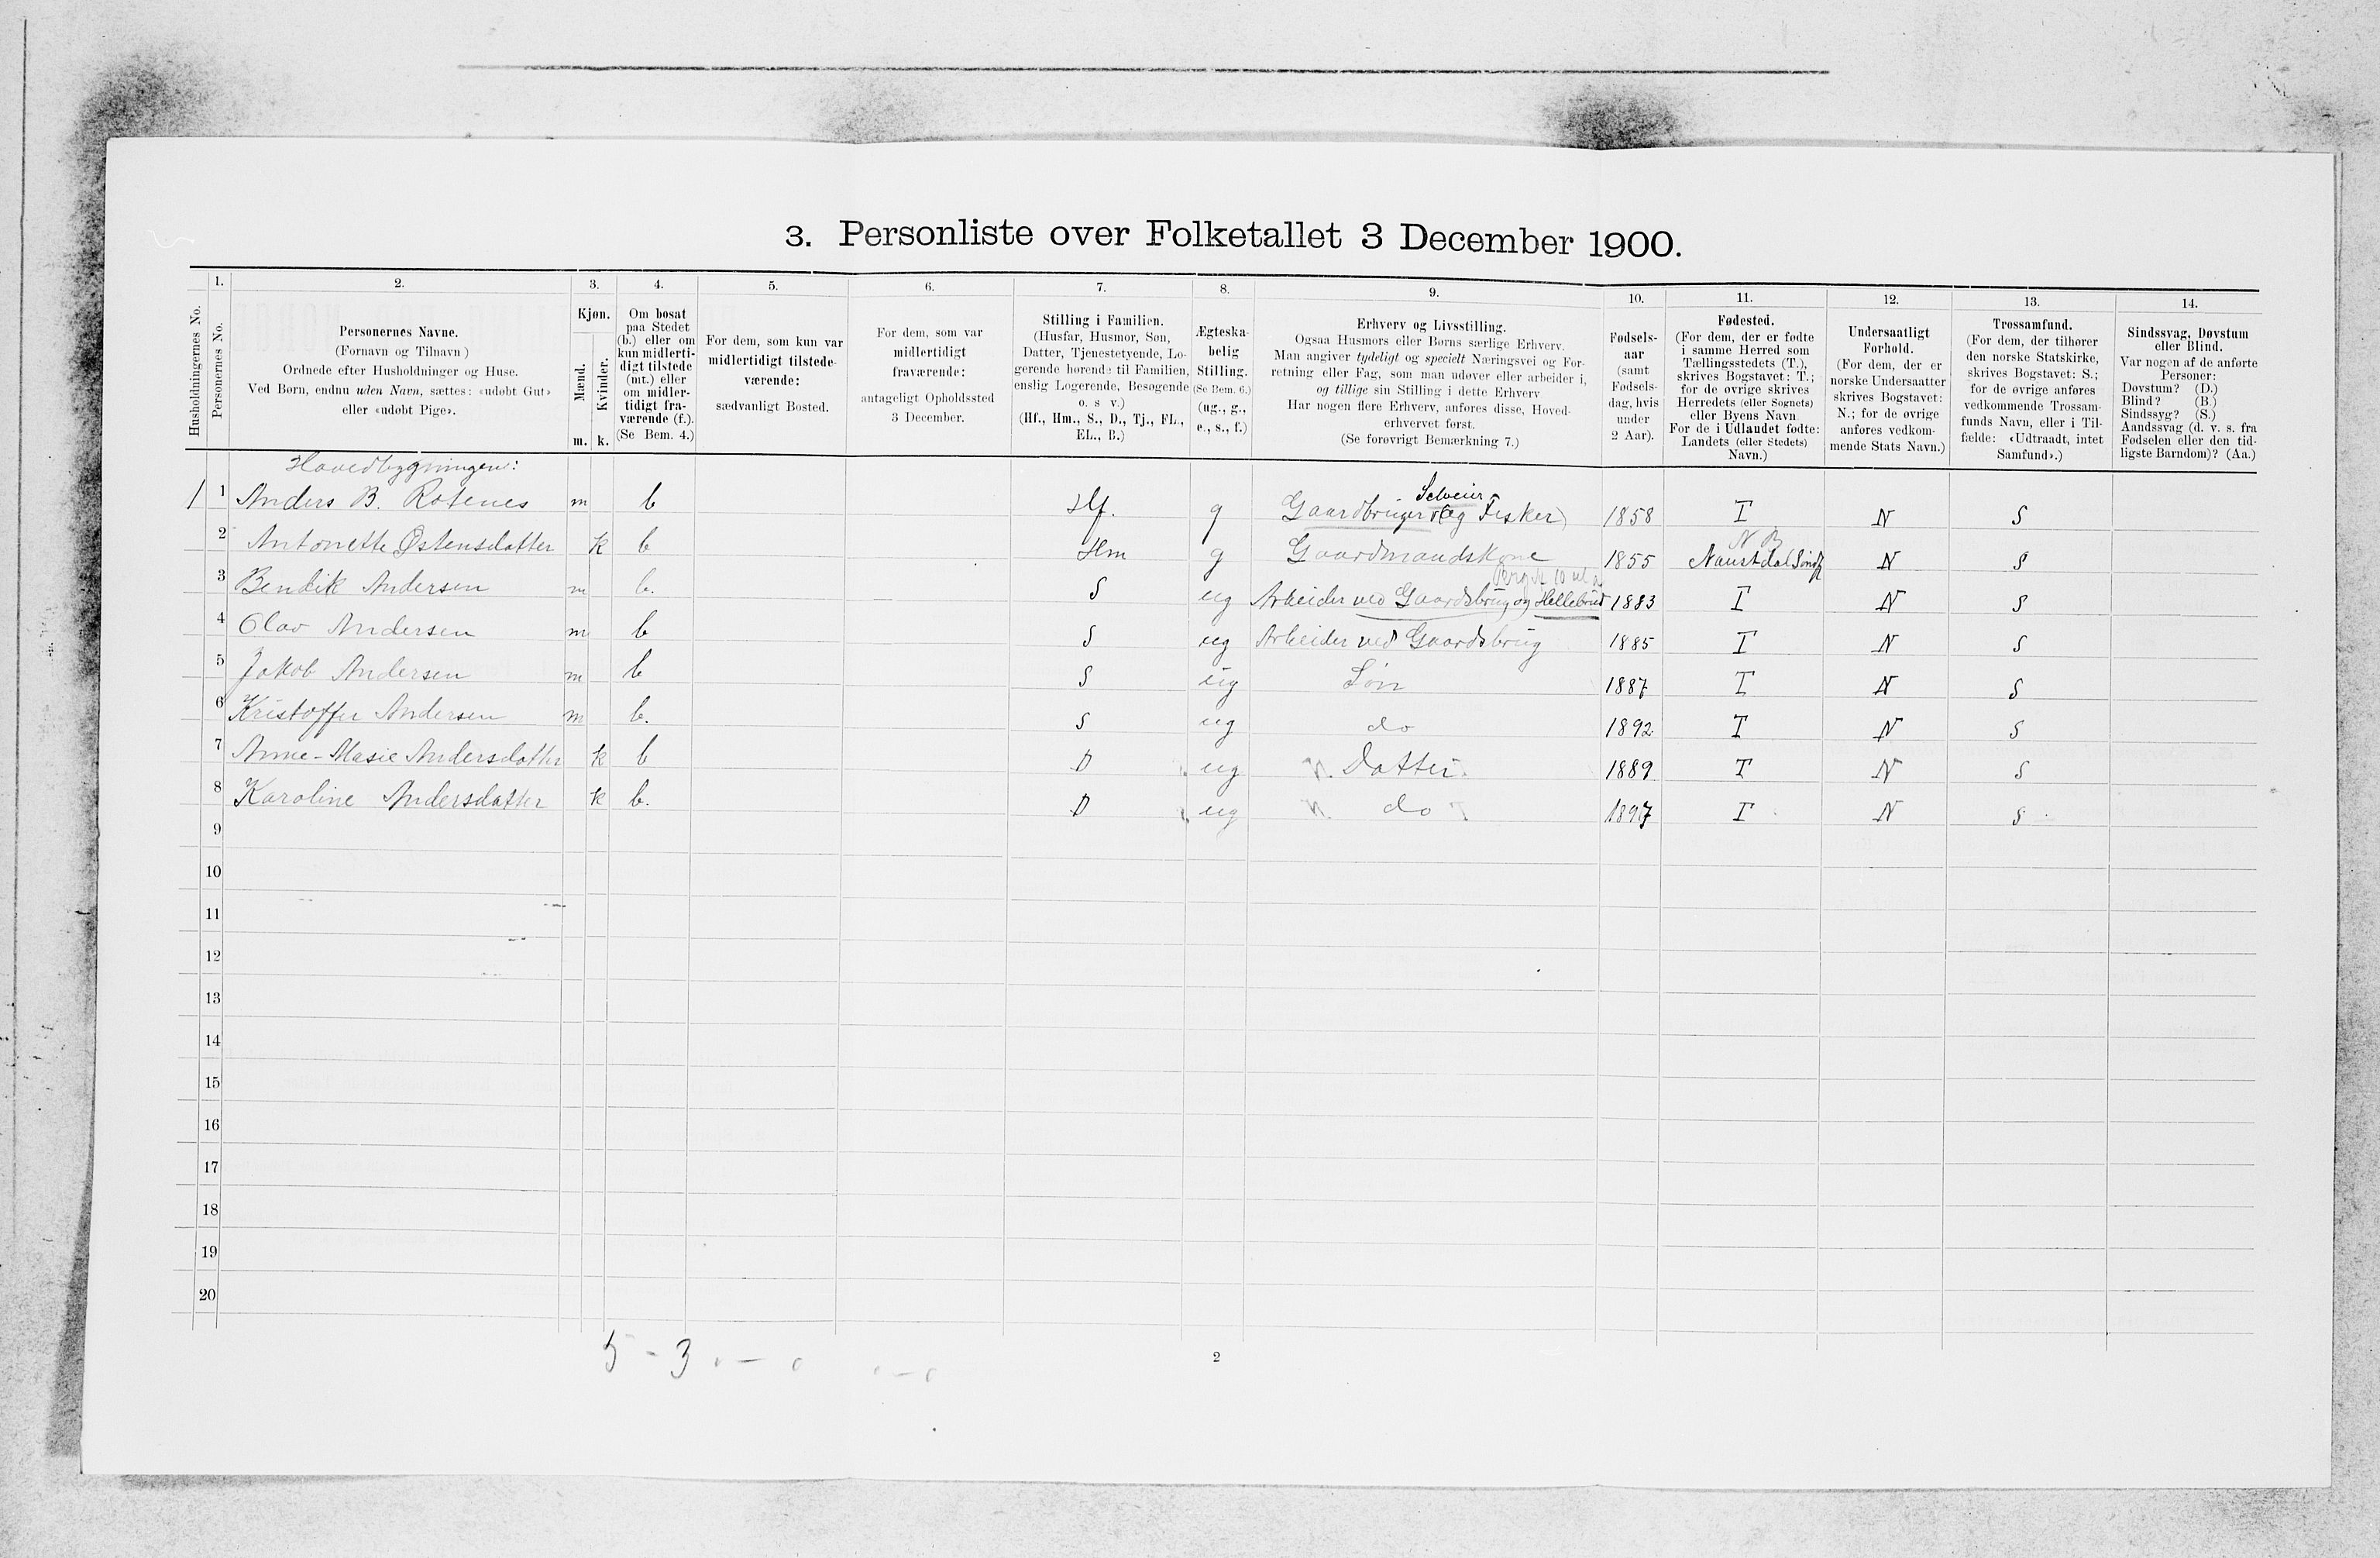 3. Personliste over Folketallet 3 December 1900.
1. 2. 3. 4. 5. 6. 7. 8. 9. 10. 11. 12. 13. 14.
Husholdningernes No.
Personernes No.
Personernes Navne.
(Fornavn og Tilnavn)
Ordnede efter Husholdninger og Huse.
Ved Børn, endnu uden Navn, sættes: «udøbt Gut»
eller «udøbt Pige».
Kjøn.
Mænd.
m.
Kvinder.
k.
Om bosat
paa Stedet
(b.) eller om
kun midlerti-
digt tilstede
(mt.) eller
om midler-
tidigt fra-
værende (f.).
(Se Bem. 4.)
For dem, som kun var
midlertidigt tilstede-
værende:
sædvanligt Bosted.
For dem, som var
midlertidigt
fraværende:
antageligt Opholdssted
3 December.
Stilling i Familien.
(Husfar, Husmor, Søn,
Datter, Tjenestetyende, Lo-
gerende hørende til Familien,
enslig Logerende, Besøgende
o. s v.)
(Hf., Hm., S., D., Tj., FL.,
EL., B.)
Ægteska-
belig
Stilling.
(Se Bem. 6.)
(ug., g.,
e., s., f.)
Erhverv og Livsstilling.
Ogsaa Husmors eller Børns særlige Erhverv.
Man angiver tydeligt og specielt Næringsvei og For-
retning eller Fag, som man udøver eller arbeider i,
og tillige sin Stilling i dette Erhverv
Har nogen flere Erhverv, anføres disse, Hoved-
erhvervet først.
(Se forøvrigt Bemærkning 7.)
Fødsels-
aar
(samt
Fødsels-
dag, hvis
under
2 Aar).
Fødested.
(For dem, der er fødte
i samme Herred som
Tællingsstedets (T.),
skrives Bogstavet: T.;
for de øvrige skrives
Herredets (eller Sognets)
eller Byens Navn
For de i Udlandet fødte:
Landets (eller Stedets)
Navn.)
Undersaatligt
Forhold.
(For dem, der er
norske Undersaatter
skrives Bogstavet:
N.; for de øvrige
anføres vedkom-
mende Stats Navn.)
Trossamfund.
(For dem, der tilhører
den norske Statskirke,
skrives Bogstavet: S.;
for de øvrige anføres
vedkommende Trossam-
funds Navn, eller i Til-
fælde: «Udtraadt, intet
Samfund».)
Sindssvag, Døvstum
eller Blind.
Var nogen af de anførte
Personer:
Døvstum? (D.)
Blind? (B.)
Sindssyg? (S.)
Aandssvag (d. v. s. fra
Fødselen eller den tid-
ligste Barndom)? (Aa.)
Hovedbygningen:
Selveier
1 1 Anders B. Rotenes m b Hf. g Gaardbruger (og Fisker) 1858 T N S
N B
2 Antonette Østensdatter k b Hm g Gaardmandskone 1855 Naustdal Søndf N S
3 Bendik Andersen m b. S ug Arbeider ved Gaardsbrug og Hellebrud 1883 T N S
4 Olav Andersen m b S ug Arbeider ved Gaardsbrug 1885 T N S
5 Jakob Andersen m b S ug Søn 1887 T N S
6 Kristoffer Andersen m b. S ug do 1892 T N S
7 Anne-Marie Andersdatter k b D ug Datter 1889 T N S
8 Karoline Andersdatter k b. D ug do 1897 T N S
9
10
11
12
13
14
15
16
17
18
19
20
5 - 3
2